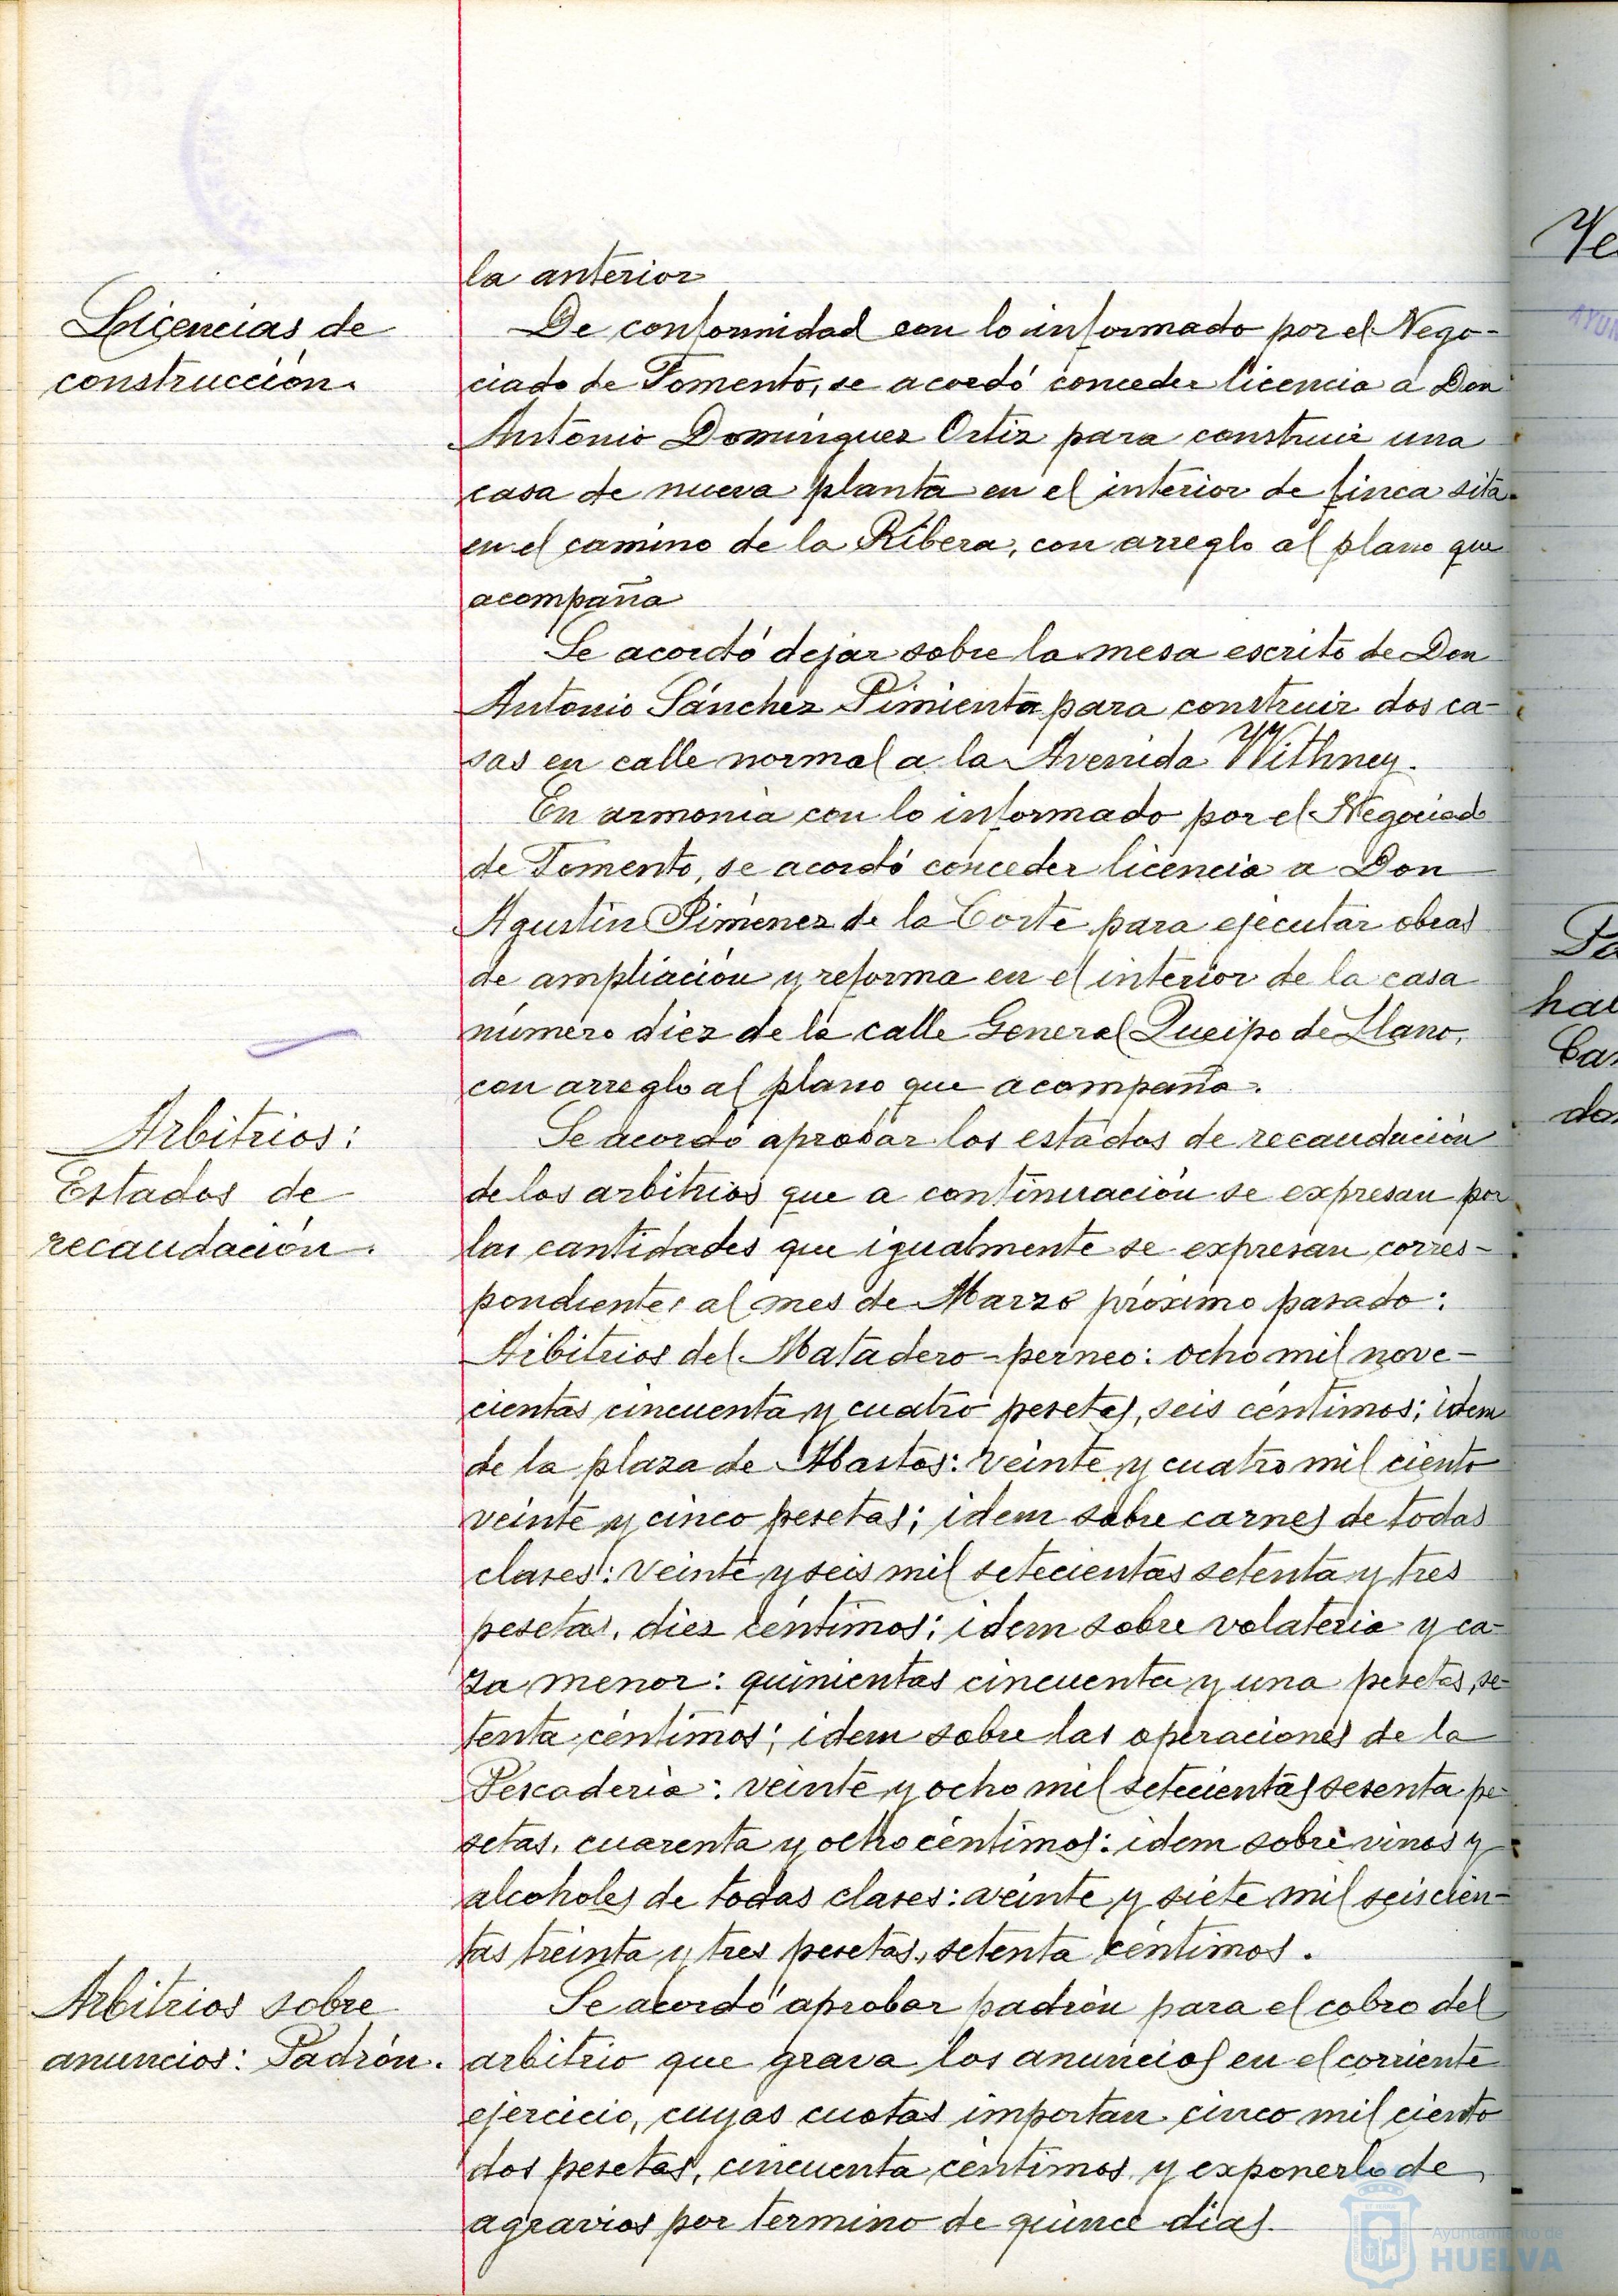 la anterior
Licencias de
construcción.
De conformidad con lo informado por el Nego-
ciado de Fomento, se acordó conceder licencia a Don
Antonio Domínguez Ortiz para construir una
casa de nueva planta en el interior de finca sita
en el camino de la Ribera, con arreglo al plano que
acompaña
Se acordó dejar sobre la mesa escrito de Don
Antonio Sánchez Pimienta para construir dos ca-
sas en calle normal a la Avenida Withney.
En armonía con lo informado por el Negociado
de Fomento, se acordó conceder licencia a Don
Agustín Jiménez de la Corte para ejecutar obras
de ampliación y reforma en el interior de la casa
número diez de la calle General Queipo de Llano,
con arreglo al plano que acompaña.
Arbitrios:
Estados de
recaudación.
Se acordó aprobar los estados de recaudación
de los arbitrios que a continuación se expresan por
las cantidades que igualmente se expresan corres-
pondientes al mes de Marzo próximo pasado:
Arbitrios del Matadero-perneo: ocho mil nove-
cientas cincuenta y cuatro pesetas, seis céntimos; idem
de la plaza de Abastos: veinte y cuatro mil ciento
veinte y cinco pesetas; idem sobre carnes de todas
clases: veinte y seis mil setecientas setenta y tres
pesetas, diez céntimos; idem sobre volatería y ca-
za menor: quinientas cincuenta y una pesetas, se-
tenta céntimos; idem sobre las operaciones de la
Pescadería: veinte y ocho mil setecientas sesenta pe-
setas, cuarenta y ocho céntimos: idem sobre vinos y
alcoholes de todas clases: veinte y siete mil seiscien-
tas treinta y tres pesetas, setenta céntimos.
Arbitrios sobre
anuncios: Padrón.
Se acordó aprobar padrón para el cobro del
arbitrio que grava los anuncios en el corriente
ejercicio, cuyas cuotas importan cinco mil ciento
dos pesetas, cincuenta céntimos y exponerlo de
agravios por término de quince días.
Ayuntamiento de
HUELVA